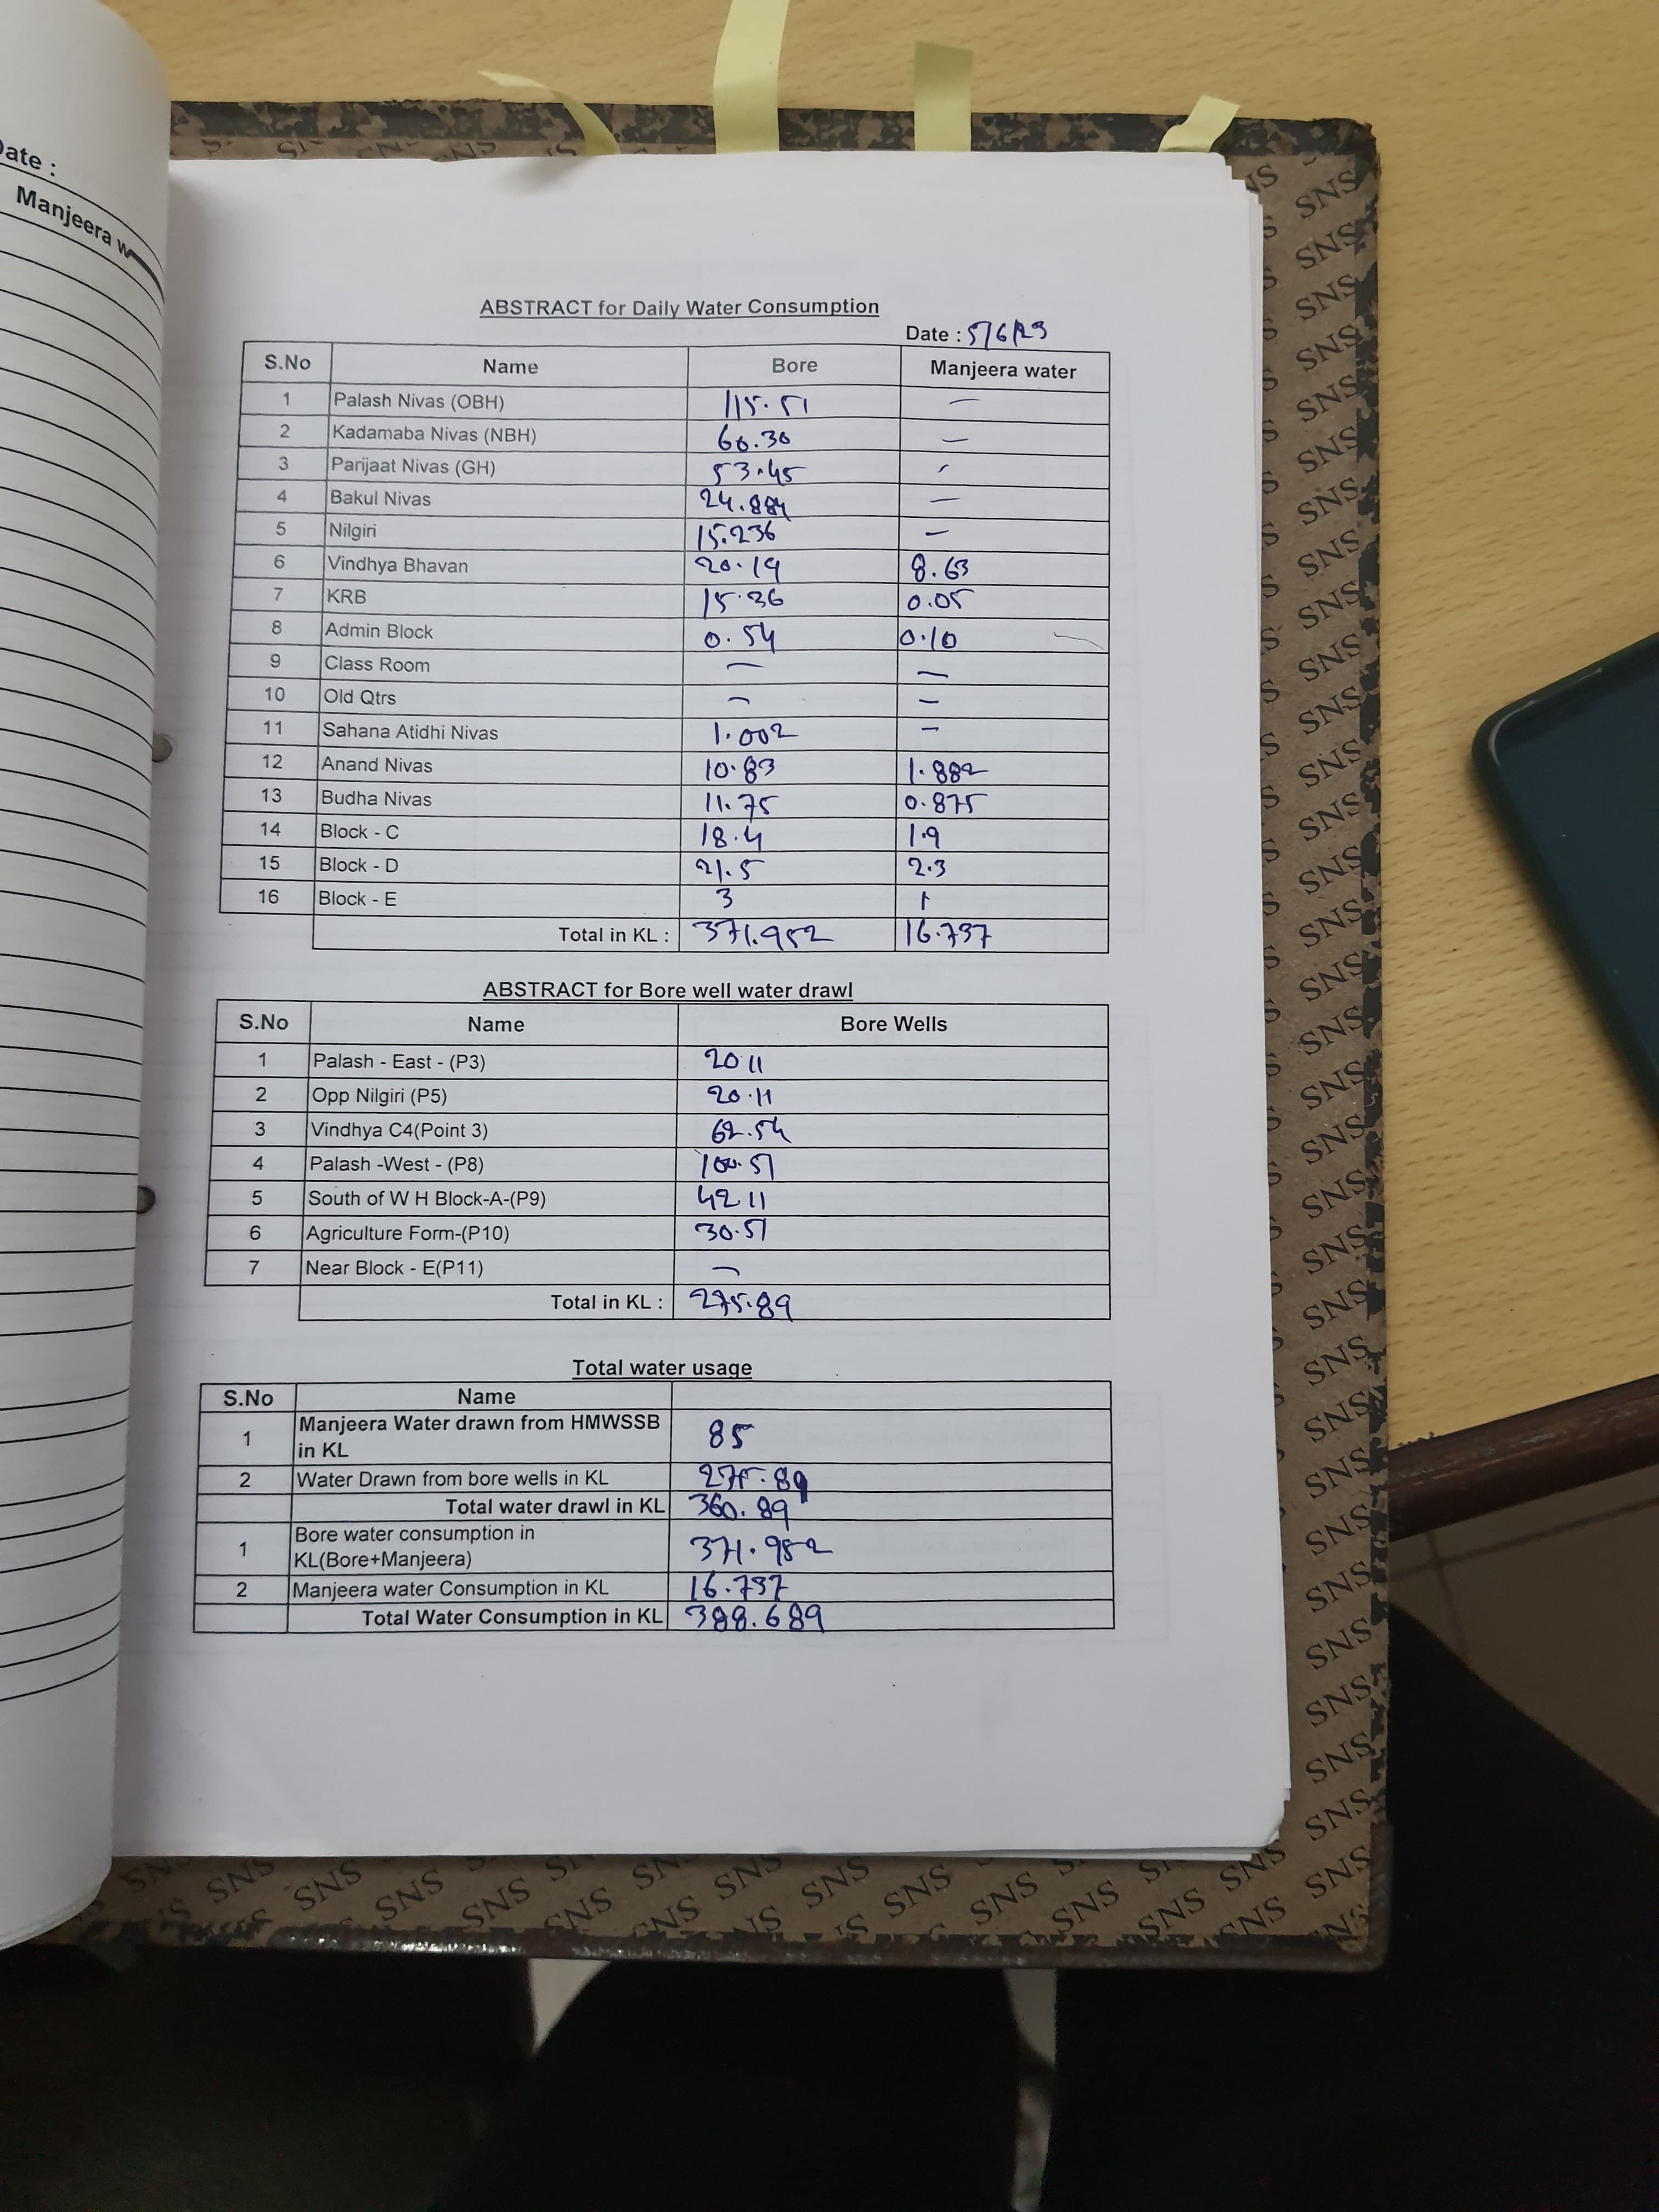 Date :
Manjeera w
ABSTRACT for Daily Water Consumption
Date : 5/6/23
S.No Name Bore Manjeera water
1 Palash Nivas (OBH) 115.51 —
2 Kadamaba Nivas (NBH) 60.30 —
3 Parijaat Nivas (GH) 53.45 -
4 Bakul Nivas 24.884 —
5 Nilgiri 15.236 —
6 Vindhya Bhavan 20.19 8.63
7 KRB 15.36 0.05
8 Admin Block 0.54 0.10
9 Class Room — —
10 Old Qtrs — —
11 Sahana Atidhi Nivas 1.002 —
12 Anand Nivas 10.83 1.882
13 Budha Nivas 11.75 0.875
14 Block - C 18.4 1.9
15 Block - D 21.5 2.3
16 Block - E 3 1
Total in KL : 371.952 16.737
ABSTRACT for Bore well water drawl
S.No Name Bore Wells
1 Palash - East - (P3) 20 11
2 Opp Nilgiri (P5) 20.11
3 Vindhya C4(Point 3) 62.54
4 Palash -West - (P8) 100.51
5 South of W H Block-A-(P9) 42 11
6 Agriculture Form-(P10) 30.51
7 Near Block - E(P11) —
Total in KL : 275.89
Total water usage
S.No Name
1 Manjeera Water drawn from HMWSSB
in KL 85
2 Water Drawn from bore wells in KL 275.89
Total water drawl in KL 360.89
1 Bore water consumption in
KL(Bore+Manjeera) 371.952
2 Manjeera water Consumption in KL 16.737
Total Water Consumption in KL 388.689
SNS